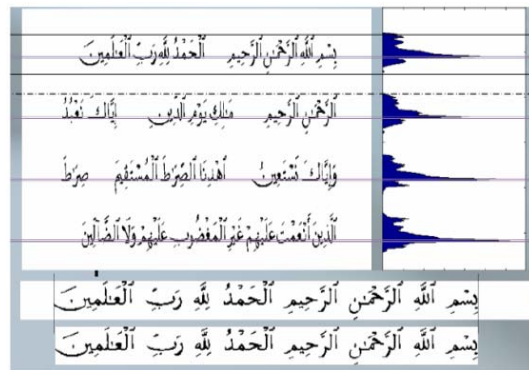 بِسْمِ ٱللَّهِ ٱلرَّحْمَٰنِ ٱلرَّحِيمِ ٱلْحَمْدُ لِلَّهِ رَبِّ ٱلْعَٰلَمِينَ
ٱلرَّحْمَٰنِ ٱلرَّحِيمِ مَٰلِكِ يَوْمِ ٱلدِّينِ إِيَّاكَ نَعْبُدُ
وَإِيَّاكَ نَسْتَعِينُ ٱهْدِنَا ٱلصِّرَٰطَ ٱلْمُسْتَقِيمَ صِرَٰطَ
ٱلَّذِينَ أَنْعَمْتَ عَلَيْهِمْ غَيْرِ ٱلْمَغْضُوبِ عَلَيْهِمْ وَلَا ٱلضَّآلِّينَ
بِسْمِ ٱللَّهِ ٱلرَّحْمَٰنِ ٱلرَّحِيمِ ٱلْحَمْدُ لِلَّهِ رَبِّ ٱلْعَٰلَمِينَ
بِسْمِ ٱللَّهِ ٱلرَّحْمَٰنِ ٱلرَّحِيمِ ٱلْحَمْدُ لِلَّهِ رَبِّ ٱلْعَٰلَمِينَ